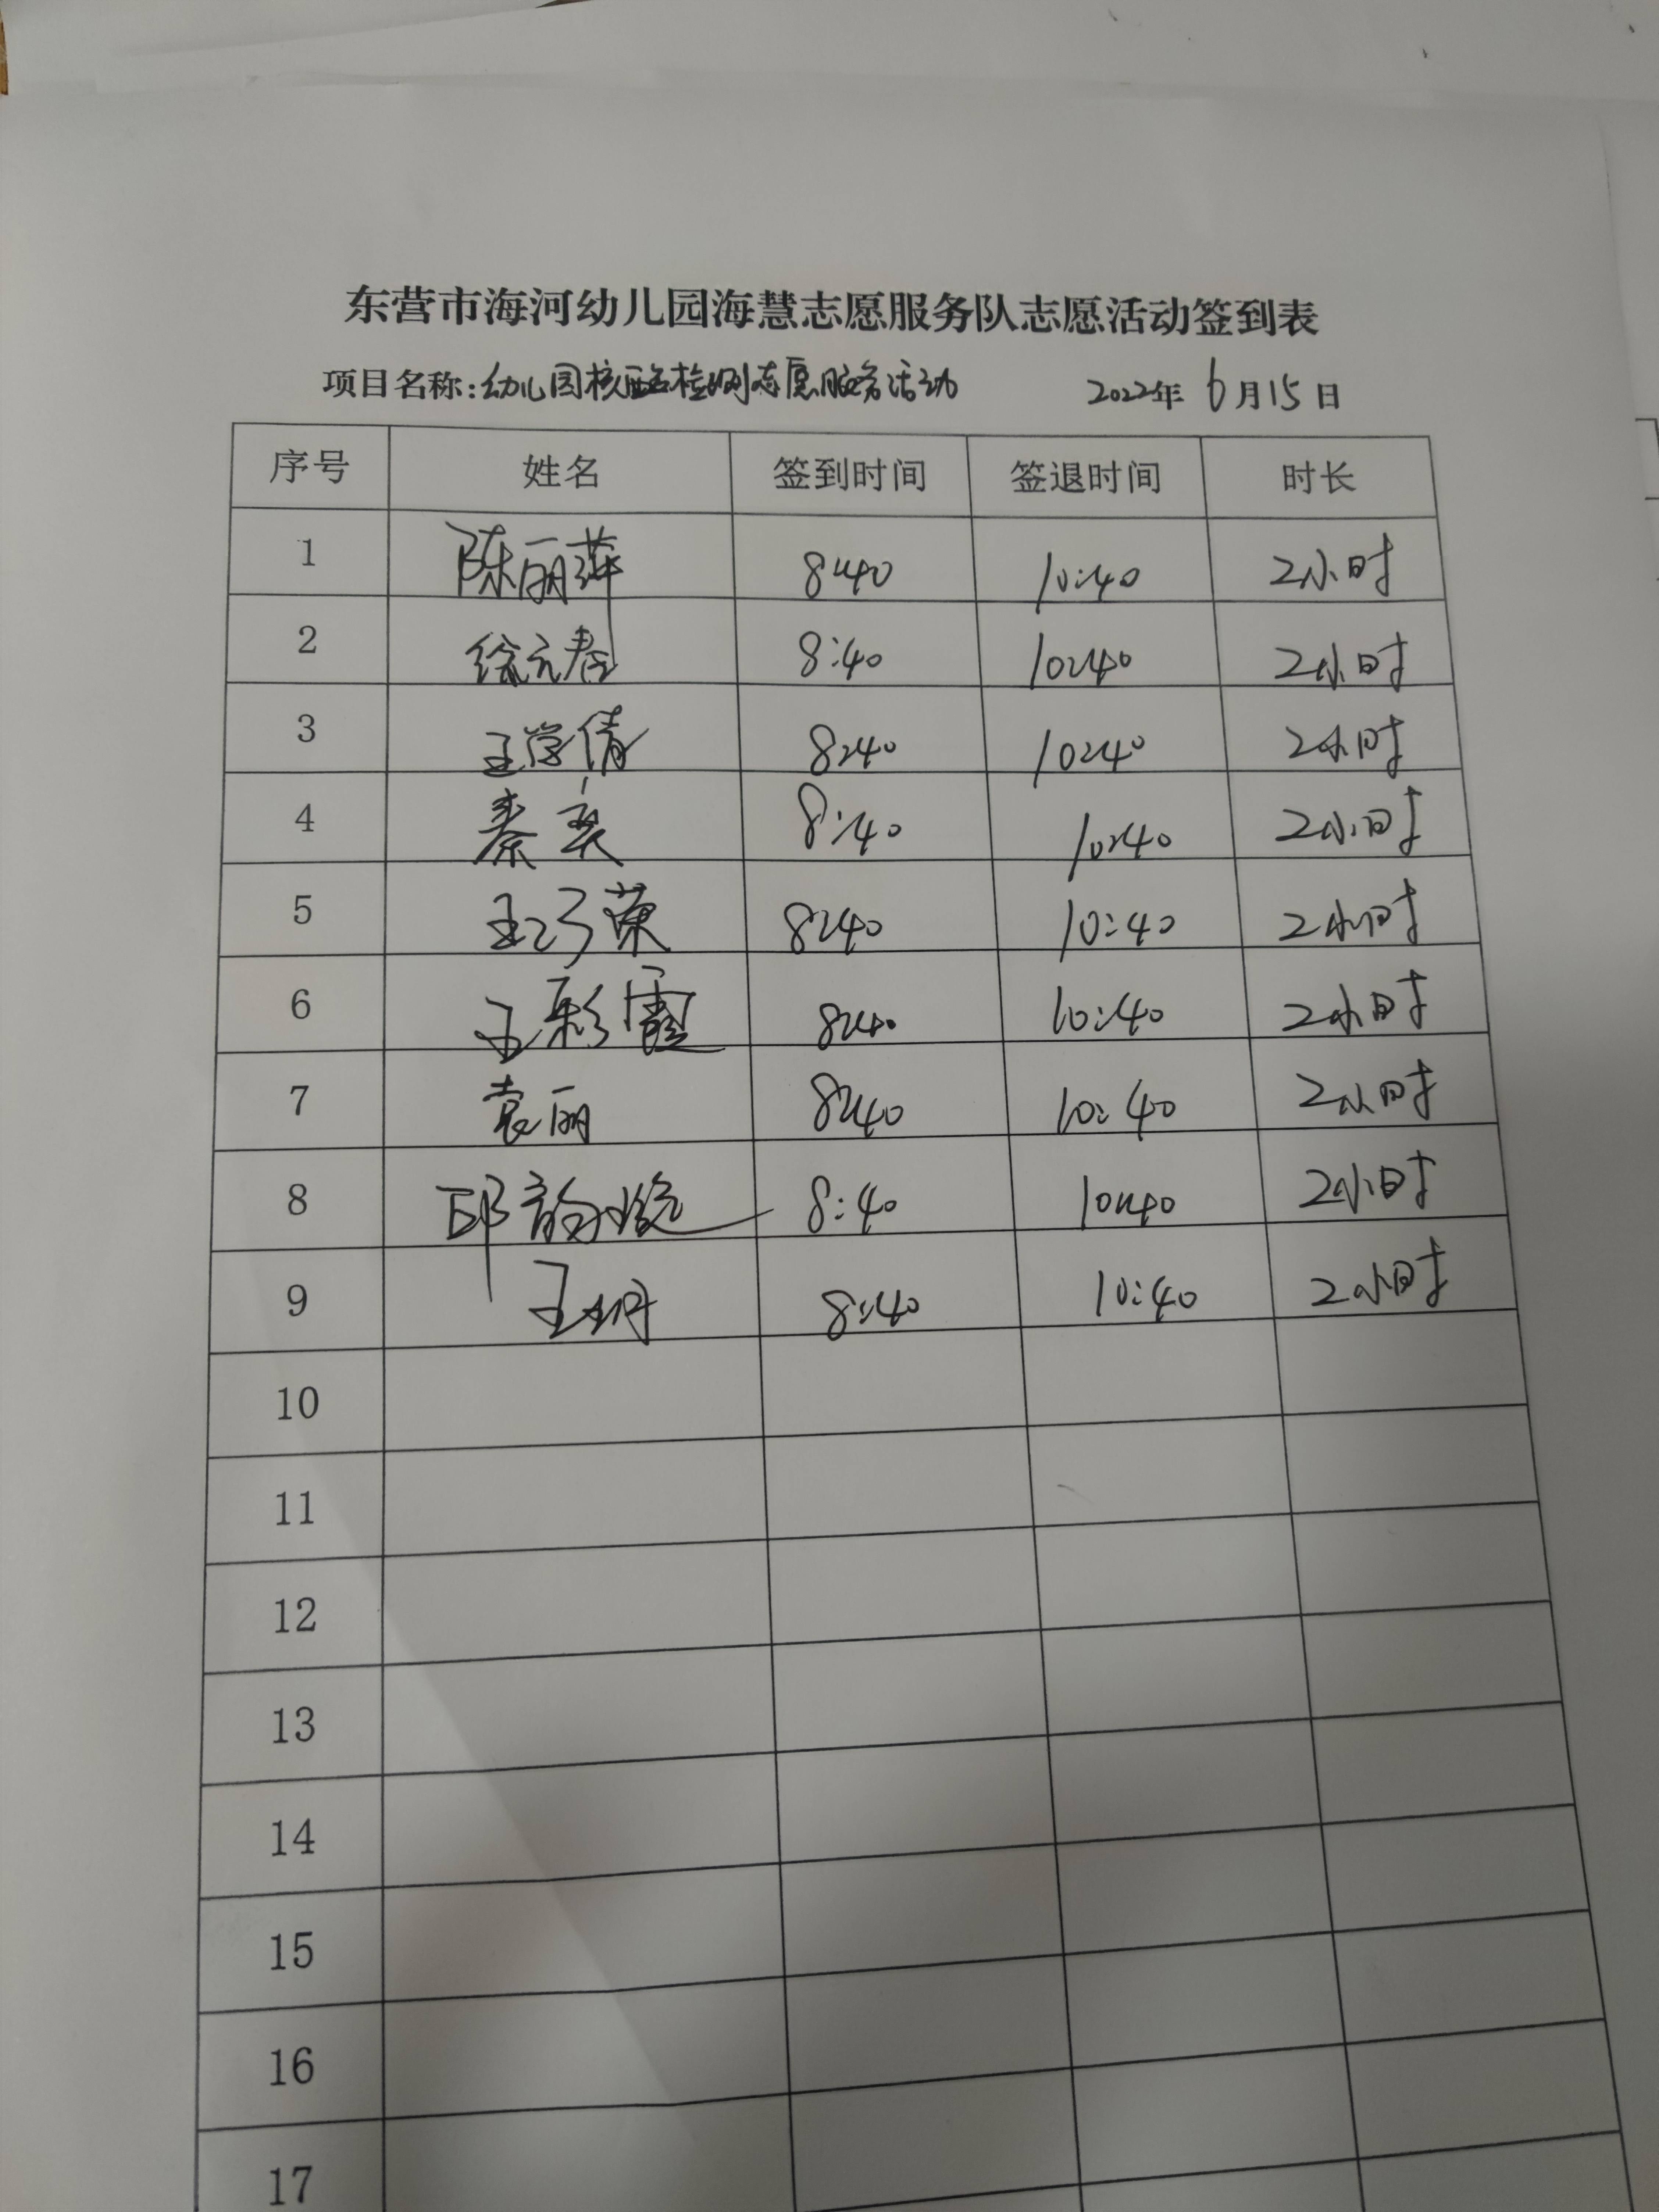 东营市海河幼儿园海慧志愿服务队志愿活动签到表
项目名称:幼儿园核酸检测志愿服务活动 2022年 6月15日
序号 姓名 签到时间 签退时间 时长
1 陈丽萍 8:40 10:40 2小时
2 徐元春 8:40 10:40 2小时
3 王学倩 8:40 10:40 2小时
4 秦 8:40 10:40 2小时
5 王巧荣 8:40 10:40 2小时
6 王彩霞 8:40 10:40 2小时
7 袁丽 8:40 10:40 2小时
8 邱韵 8:40 10:40 2小时
9 王 8:40 10:40 2小时
10
11
12
13
14
15
16
17